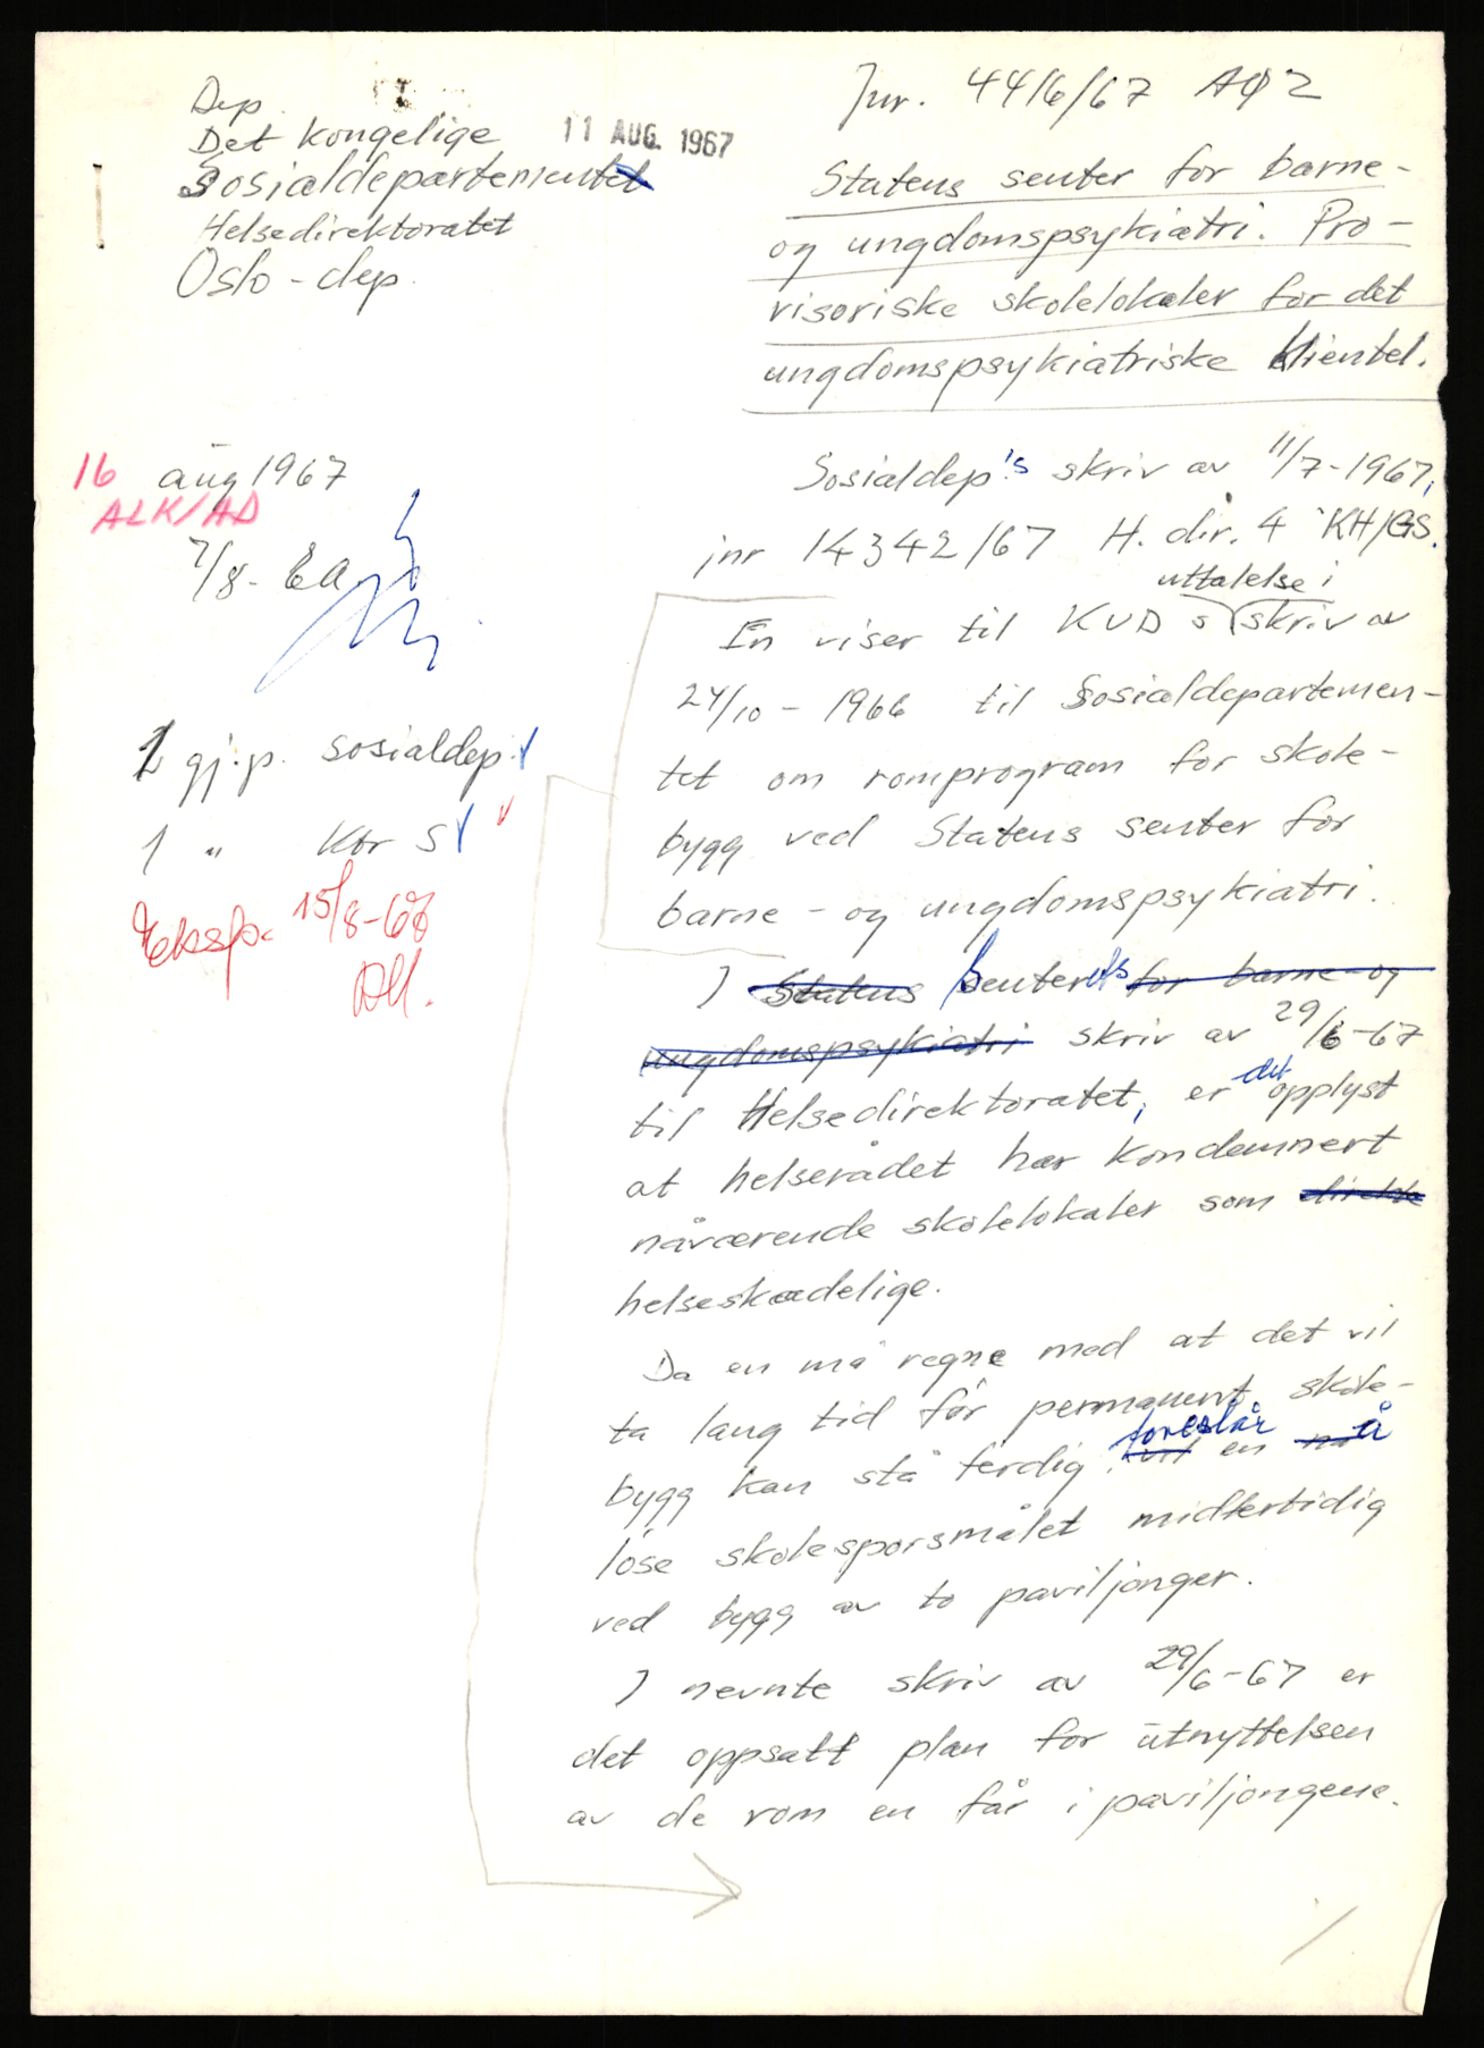 Dep.
Det kongelige
Sosialdepartementet
Helsedirektoratet
Oslo - dep.
11 AUG. 1967
Jnr. 4416/67 AØ2
Statens senter for barne-
og ungdomspsykiatri. Pro-
visoriske skolelokaler for det
ungdomspsykiatriske klientel.
16 aug 1967
ALK/AD
7/8- EA
2 gj.p. sosialdep.
1 " Ktr S
Eksp. 15/8-67
Sosialdep's skriv av 11/7-1967,
jnr 14342/67 H.dir. 4 KH/GS.
uttalelse i
En viser til KUD s skriv av
24/10 - 1966 til Sosialdepartemen-
tet om romprogram for skole-
bygg ved Statens senter for
barne - og ungdomspsykiatri.
I Statens Senterets for barne- og
ungdomspsykiatri skriv av 29/6-67
til Helsedirektoratet, er det opplyst
at helserådet har kondemnert
nåværende skolelokaler som direkte
helseskadelige.
Da en må regne med at det vil
ta lang tid før permanent skole-
bygg kan stå ferdig, vil foreslår en må å
løse skolespørsmålet midlertidig
ved bygg av to paviljonger.
I nevnte skriv av 29/6-67 er
det oppsatt plan for utnyttelsen
av de rom en får i paviljongene.